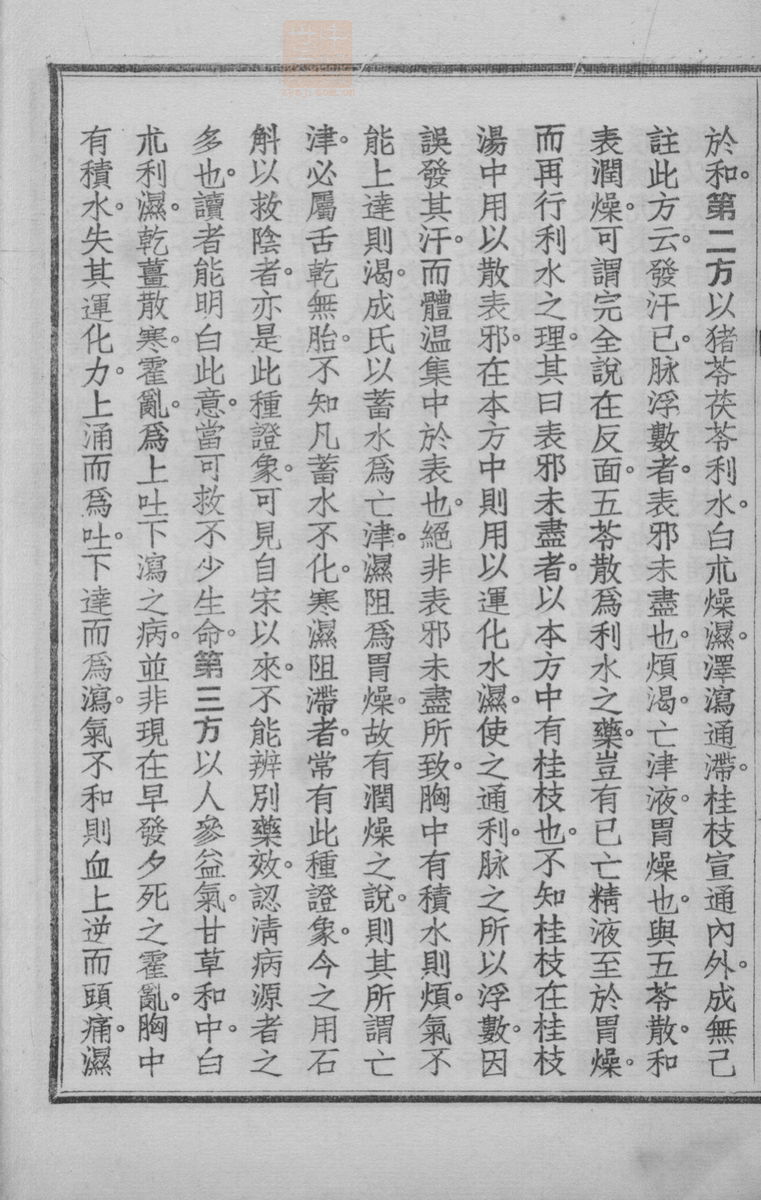 於和。第二方以猪苓茯苓利水。白朮燥濕。澤瀉通滯。桂枝宣通內外。成無己
註此方云。發汗已。脉浮數者。表邪未盡也。煩渴。亡津液。胃燥也。與五苓散。和
表潤燥。可謂完全說在反面。五苓散爲利水之藥。豈有已亡精液至於胃燥。
而再行利水之理。其曰表邪未盡者。以本方中有桂枝也。不知桂枝在桂枝
湯中用以散表邪。在本方中則用以運化水濕。使之通利。脉之所以浮數。因
誤發其汗。而體溫集中於表也。絕非表邪未盡所致。胸中有積水則煩。氣不
能上達則渴。成氏以蓄水爲亡津。濕阻爲胃燥。故有潤燥之說。則其所謂亡
津。必屬舌乾無胎。不知凡蓄水不化。寒濕阻滯者。常有此種證象。今之用石
斛以救陰者。亦是此種證象。可見自宋以來。不能辨別藥效。認淸病源者之
多也。讀者能明白此意。當可救不少生命。第三方以人參益氣。甘草和中。白
朮利濕。乾薑散寒。霍亂。爲上吐下瀉之病。並非現在早發夕死之霍亂。胸中
有積水。失其運化力。上涌而爲吐。下達而爲瀉。氣不和則血上逆而頭痛。濕